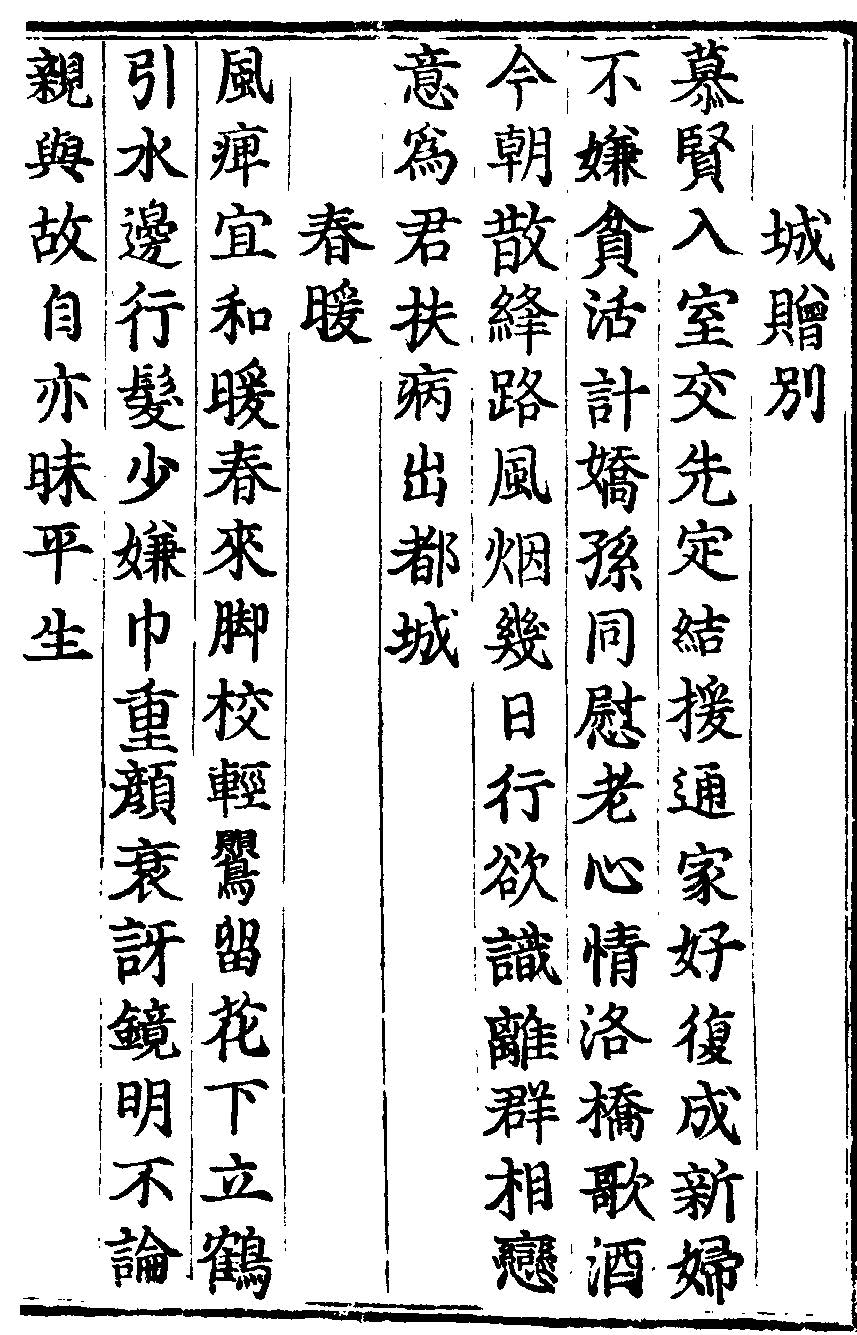 城贈別
慕賢入室交先定結援通家好復成新婦
不嫌貧活計嬌孫同慰老心情洛橋歌酒
今朝散絳路風烟幾日行欲識離群相戀
意為君扶病出都城
春暖
風痺宜和暖春來脚校輕鸎留花下立鶴
引水邊行髮少嫌巾重顏衰訝鏡明不論
親與故自亦昧平生